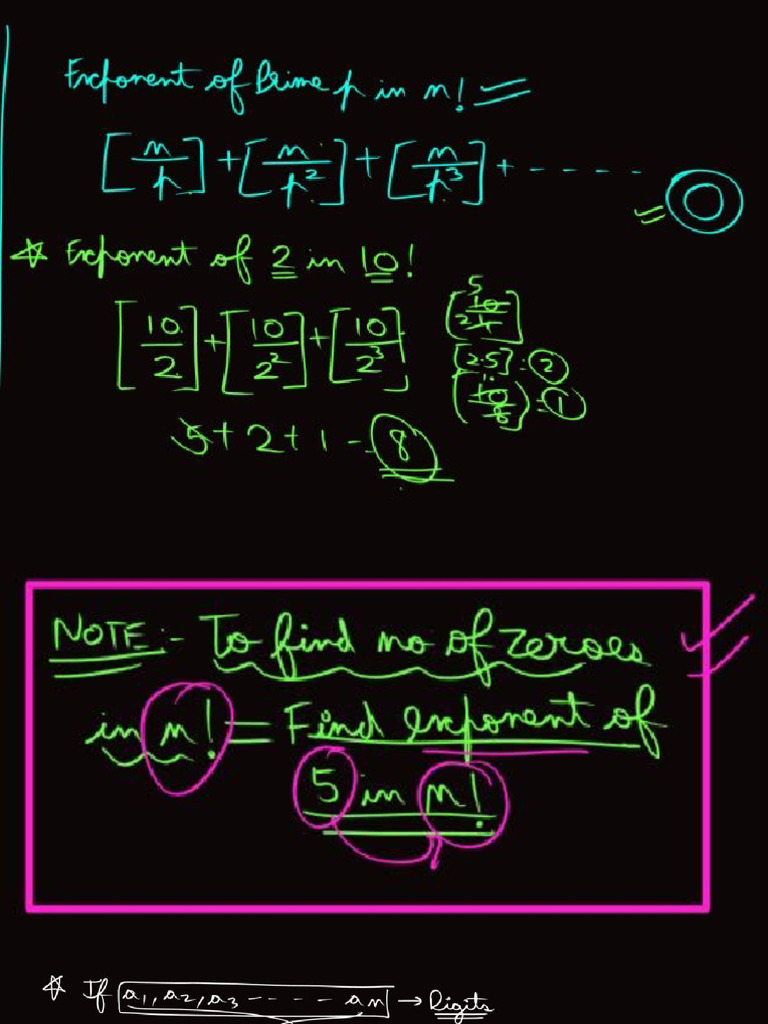 Exponent of Prime p in n! =
[n/p] + [n/p²] + [n/p³] + - - - - -
☆ Exponent of 2 in 10!
[10/2] + [10/2²] + [10/2³]
5 + 2 + 1 = 8
[2.5] = 2
[10/8] = 1
NOTE :- To find no of zeroes
in n! = Find exponent of
5 in n!
☆ If a1, a2, a3 - - - - - an → Digits